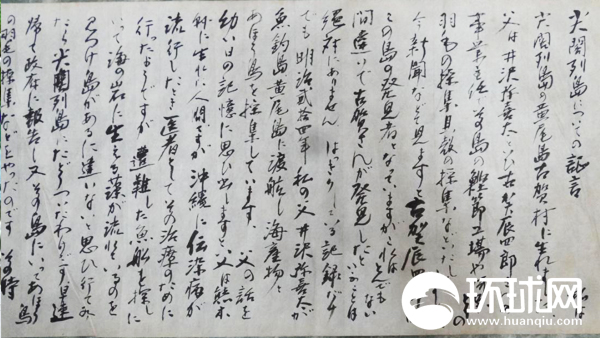 尖閣列島についての証言
尖閣列島の黄尾島古賀村に生れ
父は井沢弥喜太といひ古賀辰四郎
事業主任で 島の鰹節工場や
羽毛の採集貝殻の採集など し の
今新聞など見ますと古賀辰四
この島の発見者となっていますがこれはとんでもない
間違いで古賀さんが発見したと ことは
絶対にありません はっきりしている記録だけ
でも明治弐拾四年私の父井沢弥喜太が
魚釣島黄尾島に渡航し海産物と
あほう鳥を採集しています 父の話を
幼い日の記憶に思ひ出しますと父は熊本
県に生れた人間ですが沖縄に伝染病が
流行したとき医者としてその治療のために
行ったようですが遭難した魚船を探しに
いて海の岩に生える藻が流れているのを
見つけ島があるに違いないと思ひ行ってみ
たら尖閣列島にたどりついたわけです早速
帰って政府に報告し又その島にいってあほう鳥
の羽毛の採集など やったのです その時
环球网
www.huanqiu.com